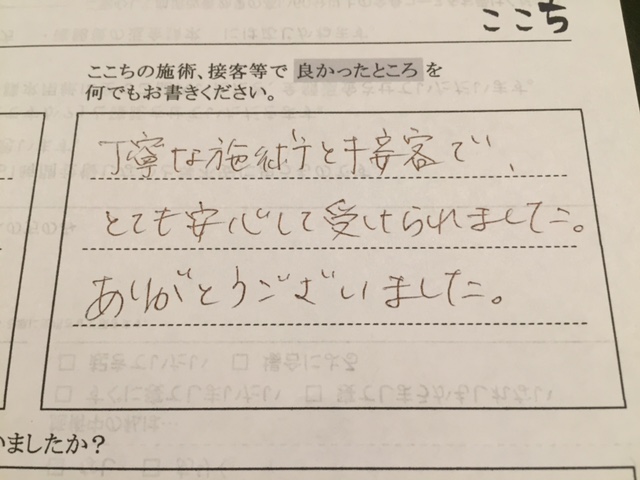 ここち
ここちの施術、接客等で 良かったところ を
何でもお書きください。
丁寧な施術と接客で、
とても安心して受けられました。
ありがとうございました。
いましたか？